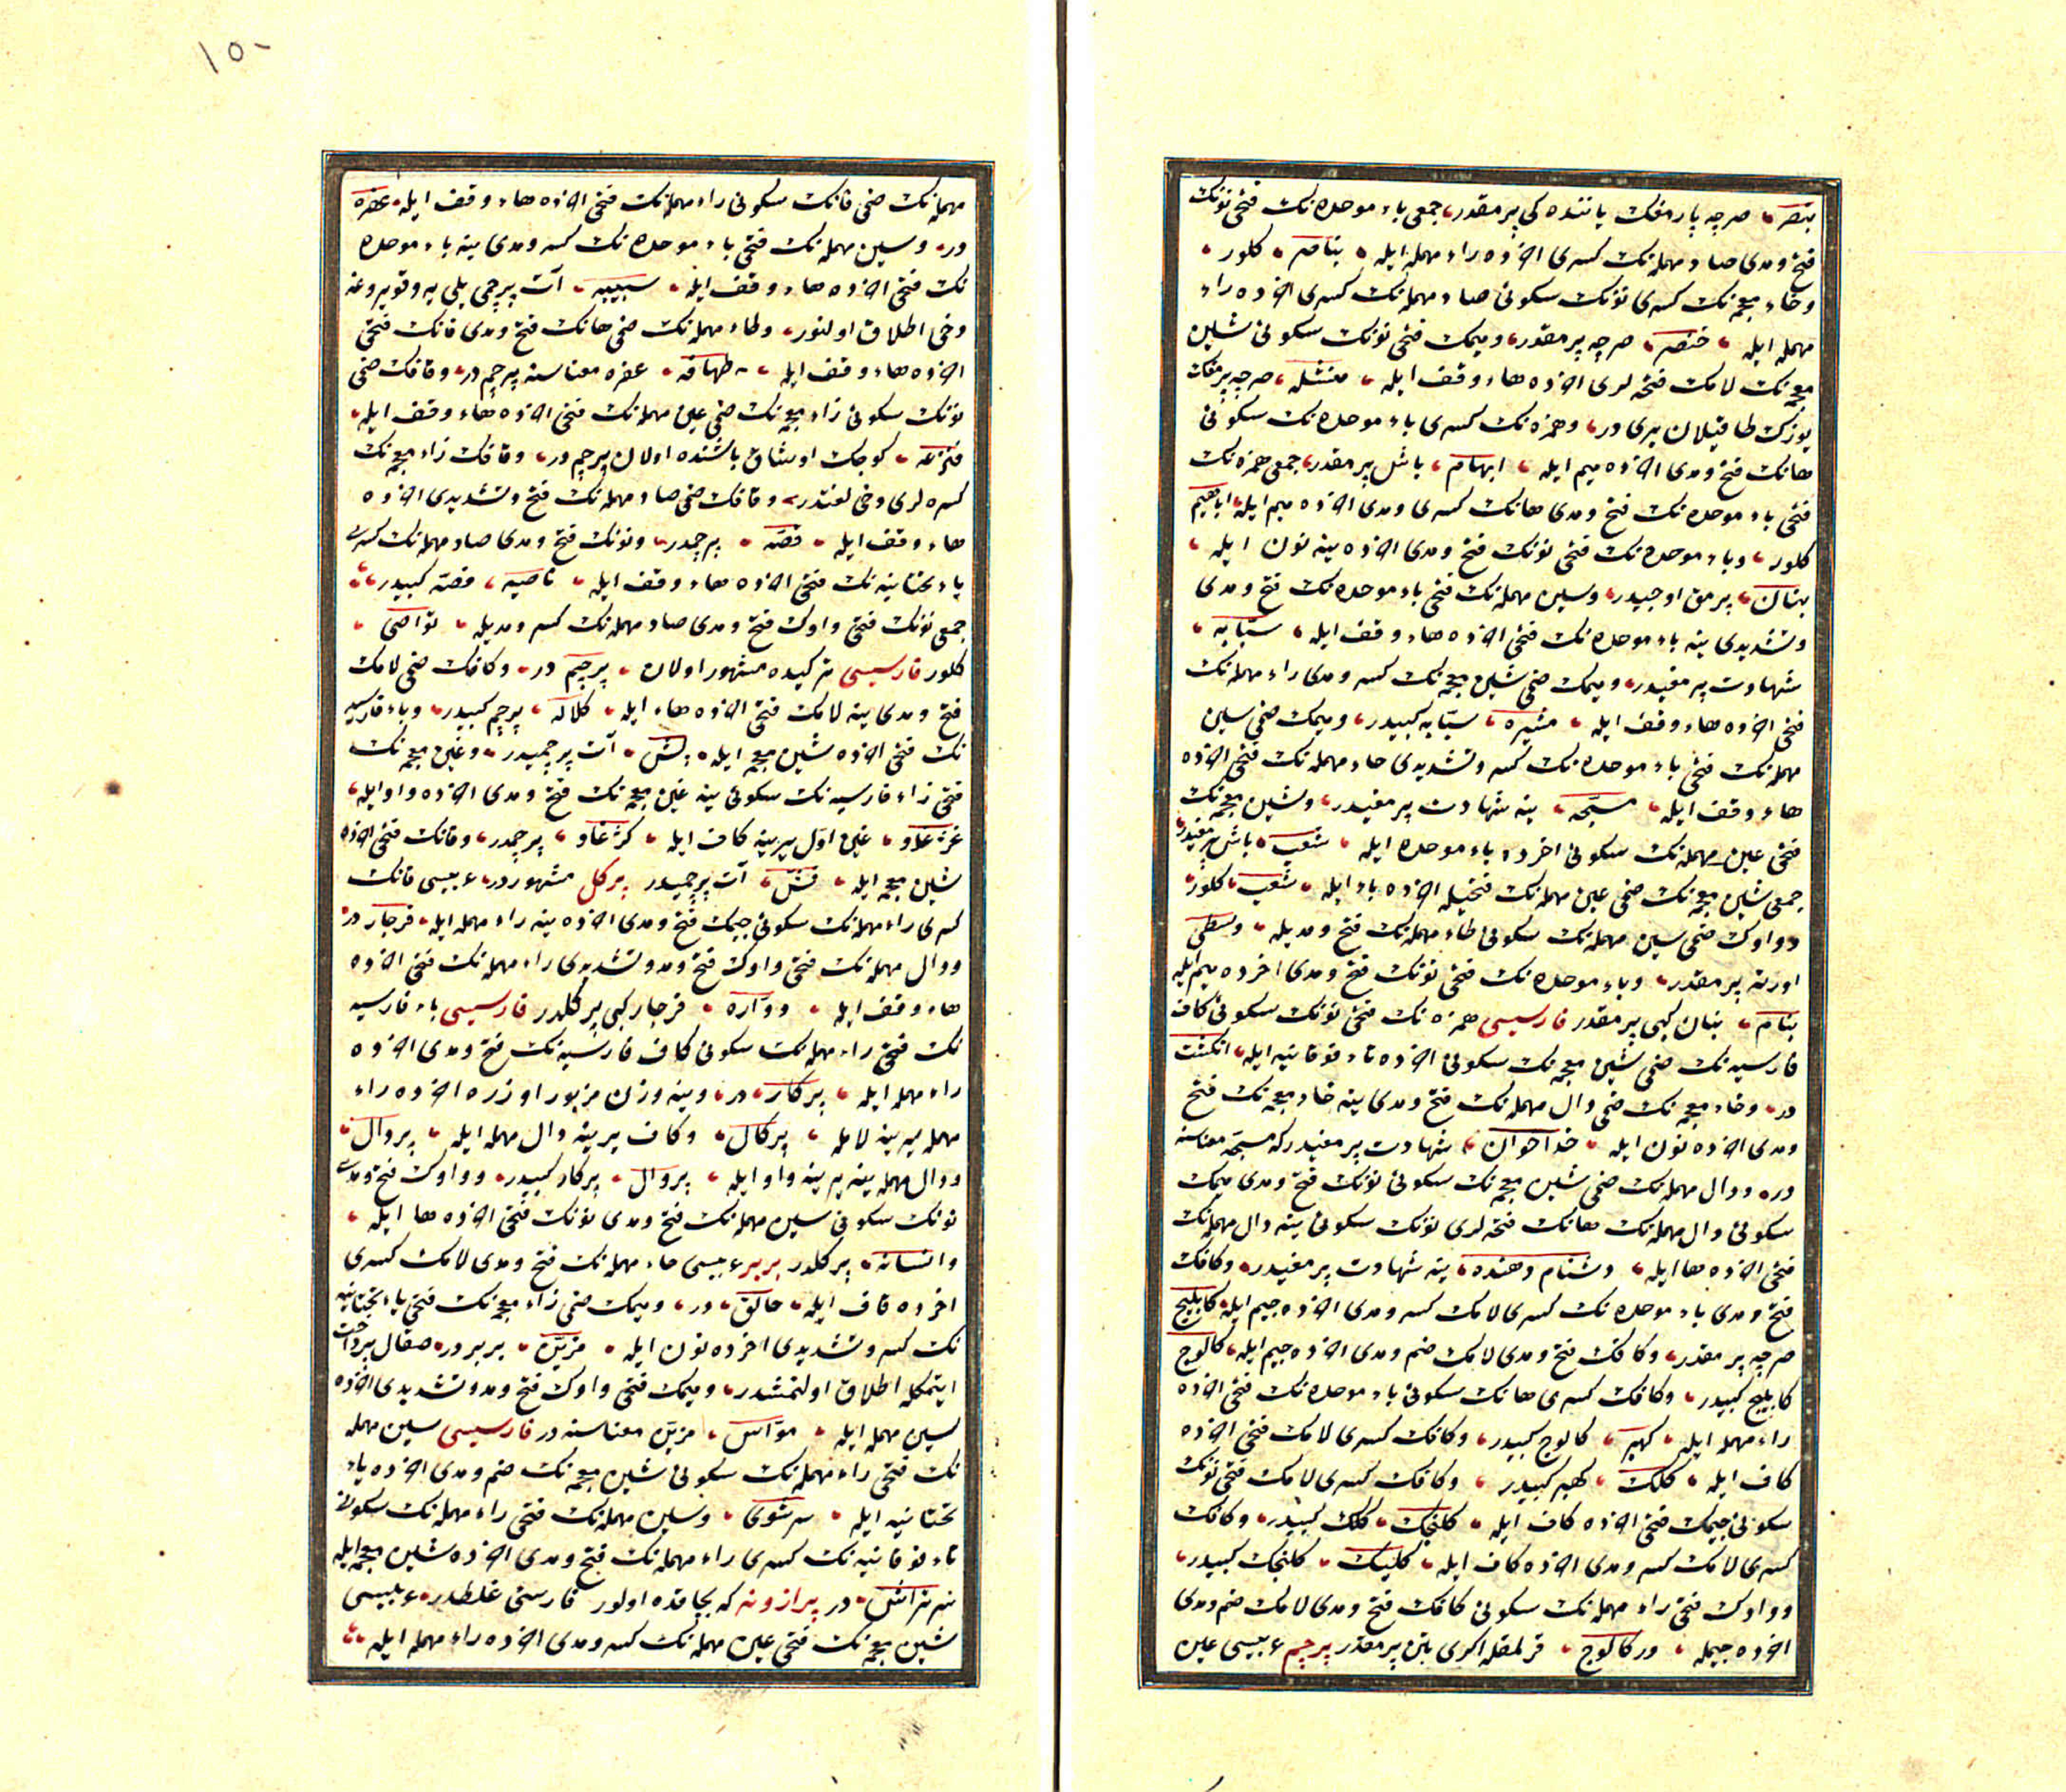 بنصر صرچه پارمغك ياننده كى پرمقدر جمعى باء موحده نك فتحى نونك
فتح ومدى صاد مهمله نك كسرى اخرده راء مهمله ايله بناصر كلور
وخاء معجمه نك كسرى نونك سكونى صاد مهمله نك كسرى اخرده راء
مهمله ايله خنصر صرچه پرمقدر وميمك فتحى نونك سكونى شين
معجمه نك لامك فتحه لرى اخرده هاء وقف ايله منشله صرچه پرمقك
يوزك طاقيلان يرى در وهمزه نك كسرى باء موحده نك سكونى
هانك فتح ومدى اخرده ميم ايله ابهام باش پرمقدر جمعى همزه نك
فتحى باء موحده نك فتح ومدى هانك كسرى ومدى اخرده ميم ايله اباهيم
كلور وباء موحده نك فتحى نونك فتح ومدى اخرده ينه نون ايله
بنان پرمق اوجيدر وسين مهمله نك فتحى باء موحده نك فتح ومدى
وتشديدى ينه باء موحده نك فتحى اخرده هاء وقف ايله سبّابه
شهادت پرمغيدر وميمك ضمى شين معجمه نك كسر ومدى راء مهمله نك
فتحى اخرده هاء وقف ايله مشيره سبّابه كبيدر وميمك ضمى سين
مهمله نك فتحى باء موحده نك كسر وتشديدى حاء مهمله نك فتحى اخرده
هاء وقف ايله مسبّحه ينه شهادت پرمغيدر وشين معجمه نك
فتحى عين مهمله نك سكونى اخرده باء موحده ايله شعب باش پرمغيدر
جمعى شين معجمه نك ضمى عين مهمله نك فتحيله اخرده باء ايله شعب كلور
وواوك ضمى سين مهمله نك سكونى طاء مهمله نك فتح ومديله وسطى
اورته پرمقدر وباء موحده نك فتحى نونك فتح ومدى اخرده ميم ايله
بنام بنان كبى پرمقدر فارسيسى همزه نك فتحى نونك سكونى كاف
فارسيه نك ضمى شين معجمه نك سكونى اخرده تاء فوقانيه ايله انكشت
در وخاء معجمه نك ضمى دال مهمله نك فتح ومدى ينه خاء معجمه نك فتح
ومدى اخرده نون ايله خداخوان شهادت پرمغيدر كه مسبّحه معناسنه
در ودال مهمله نك ضمى شين معجمه نك سكونى نونك فتح ومدى ميمك
سكونى دال مهمله نك هانك فتحه لرى نونك سكونى ينه دال مهمله نك
فتحى اخرده ها ايله دشنام دهنده ينه شهادت پرمغيدر وكافك
فتح ومدى باء موحده نك كسرى لامك كسر ومدى اخرده جيم ايله كابليج
صرچه پرمقدر وكافك فتح ومدى لامك ضم ومدى اخرده جيم ايله كالوج
كابليج كبيدر وكافك كسرى هانك سكونى باء موحده نك فتحى اخرده
راء مهمله ايله كهبر كالوج كبيدر وكافك كسرى لامك فتحى اخرده
كاف ايله كلك كهبر كبيدر وكافك كسرى لامك فتحى نونك
سكونى جيمك فتحى اخرده كاف ايله كلنجك كلك كبيدر وكافك
كسرى لامك كسر ومدى اخرده كاف ايله كليك كلنجك كبيدر
وواوك فتحى راء مهمله نك سكونى كافك فتح ومدى لامك ضم ومدى
اخرده جيمله وركالوج قرلمقله اكرى بتن پرمقدر پرچم عربيسى عين
١٥٠
مهمله نك ضمى فانك سكونى راء مهمله نك فتحى اخرده هاء وقف ايله عفره
در وسين مهمله نك فتحى باء موحده نك كسر ومدى ينه باء موحده
نك فتحى اخرده هاء وقف ايله سبيبه آت پرچمى يلى يه وقويروغنه
دخى اطلاق اولنور وطاء مهمله نك ضمى هانك فتح ومدى فانك فتحى
اخرده هاء وقف ايله طهافه عفره معناسنه پرچم در وقافك ضمى
نونك سكونى زاء معجمه نك ضمى عين مهمله نك فتحى اخرده هاء وقف ايله
قنزعه كوچك اوشاق باشنده اولان پرچم در وقافك زاء معجمه نك
كسره لرى دخى لغتدر وقافك ضمى صاد مهمله نك فتح وتشديدى اخرده
هاء وقف ايله قصّه پرچمدر ونونك فتح ومدى صاد مهمله نك كسرى
ياء تحتانيه نك فتحى اخرده هاء وقف ايله ناصيه قصّه كبيدر
جمعى نونك فتحى واوك فتح ومدى صاد مهمله نك كسر ومديله نواصى
كلور فارسيسى تركيده مشهور اولان پرچم در وكافك ضمى لامك
فتح ومدى ينه لامك فتحى اخرده هاء ايله كلاله پرچم كبيدر وباء فارسيه
نك فتحى اخرده شين معجمه ايله پش آت پرچميدر وغين معجمه نك
فتحى زاء فارسيه نك سكونى ينه غين معجمه نك فتح ومدى اخرده واو ايله
غژغاو غين اول يرينه كاف ايله كژغاو پرچمدر وفانك فتحى اخرده
شين معجمه ايله فش آت پرچميدر پركل مشهوردر عربيسى فانك
كسرى راء مهمله نك سكونى جيمك فتح ومدى اخرده ينه راء مهمله ايله فرجار در
ودال مهمله نك فتحى واوك فتح ومد وتشديدى راء مهمله نك فتحى اخرده
هاء وقف ايله دوّاره فرجار كبى پركلدر فارسيسى باء فارسيه
نك فتحى راء مهمله نك سكونى كاف فارسيه نك فتح ومدى اخرده
راء مهمله ايله پركار در وينه وزن مزبور اوزره اخرده راء
مهمله يرينه لامله پركال وكاف يرينه دال مهمله ايله پردال
ودال مهمله ينه يرينه واو ايله پروال پركار كبيدر وواوك فتح ومدى
نونك سكونى سين مهمله نك فتح ومدى نونك فتحى اخرده ها ايله
وانسانه پركلدر بربر عربيسى حاء مهمله نك فتح ومدى لامك كسرى
اخرده قاف ايله حالق در وميمك ضمى زاء معجمه نك فتحى ياء تحتانيه
نك كسر وتشديدى اخرده نون ايله مزيّن بربردر صقال پرداخت
ايتمكله اطلاق اولنمشدر وميمك فتحى واوك فتح ومد وتشديدى اخرده
سين مهمله ايله موّاس مزيّن معناسنه در فارسيسى سين مهمله
نك فتحى راء مهمله نك سكونى شين معجمه نك ضم ومدى اخرده ياء
تحتانيه ايله سرشوى وسين مهمله نك فتحى راء مهمله نك سكونى
تاء فوقانيه نك كسرى راء مهمله نك فتح ومدى اخرده شين معجمه ايله
سرتراش در پرازونه كه بچاقده اولور فارسى غلطدر عربيسى
شين معجمه نك فتحى عين مهمله نك كسر ومدى اخرده راء مهمله ايله